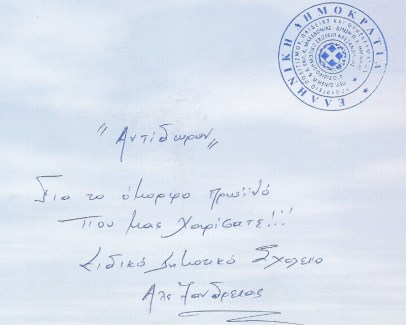 ΕΛΛΗΝΙΚΗ ΔΗΜΟΚΡΑΤΙΑ
"Αντίδωρον"
Για το όμορφο πρωϊνό
που μας χαρίσατε!!!
Ειδικό Δημοτικό Σχολείο
Αλεξανδρείας